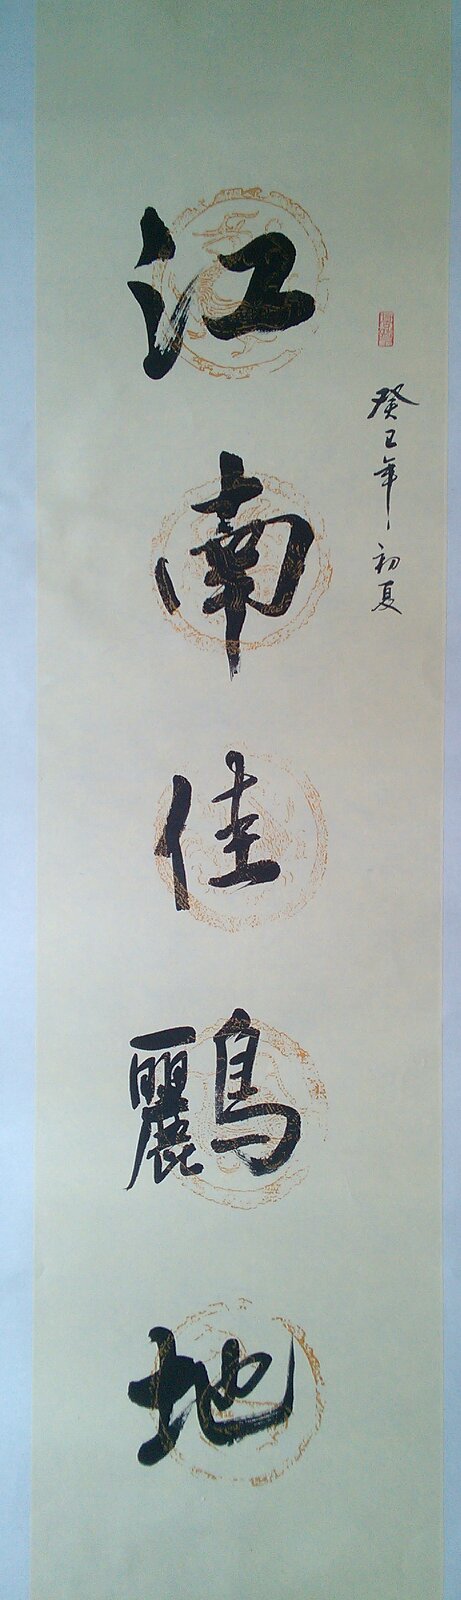 癸巳年初夏
江南佳鸝地